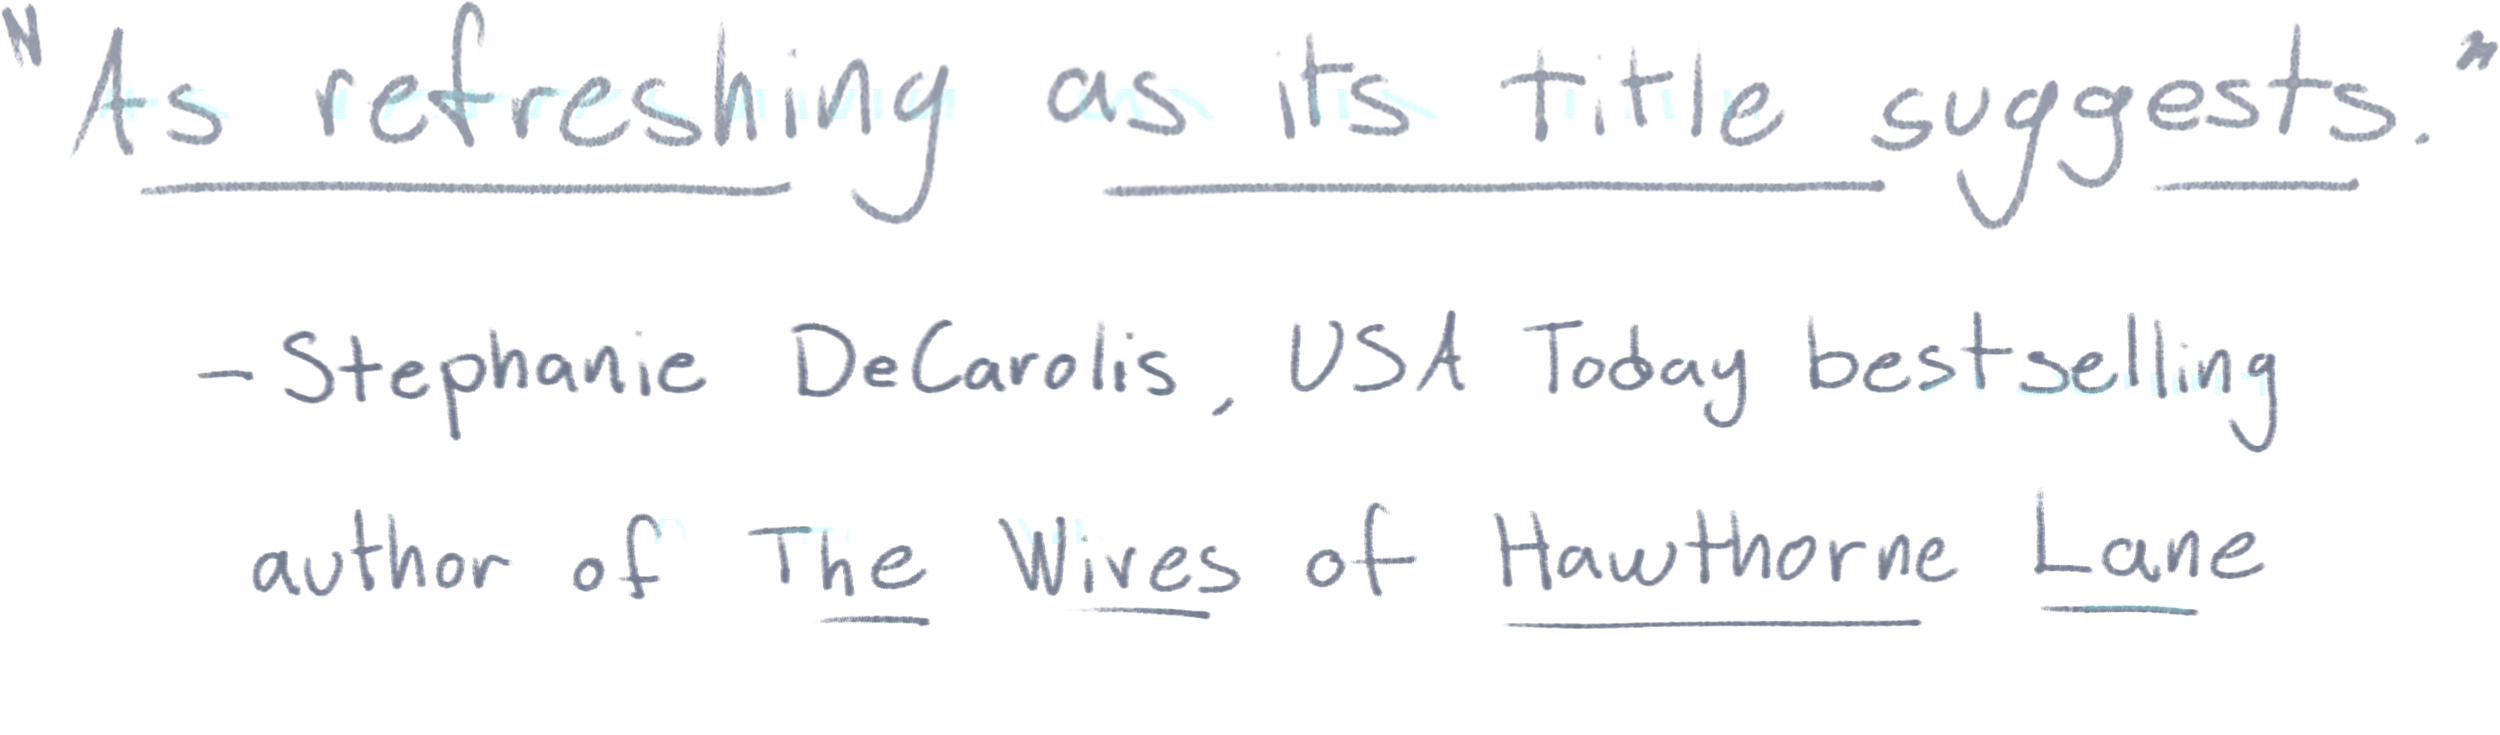 "As refreshing as its title suggests."
- Stephanie DeCarolis, USA Today bestselling
author of The Wives of Hawthorne Lane